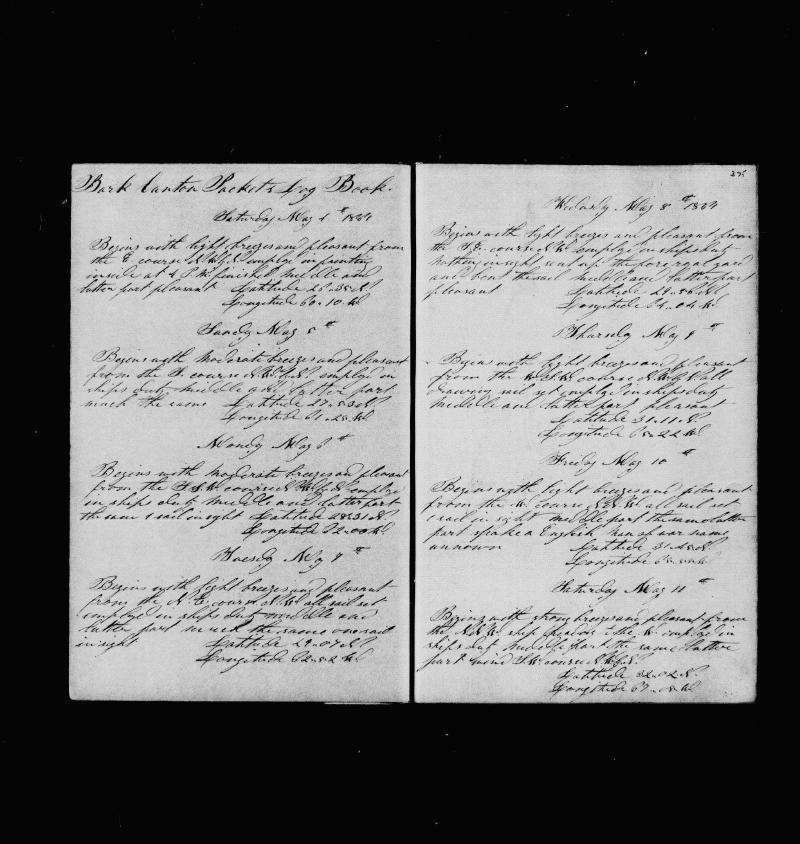 Bark Canton Packets Log Book.
Saturday May 4th 1839
Begins with light breezes and pleasant from
the E. course N.W. employ in painting
inside at 4 P.M. finished middle and
latter part pleasant Latitude 25..35 N
Longitude 60..10 W
Sundy May 5th
Begins with moderate breezes and pleasant
from the S. course employed in
ships duty middle and latter part
much the same Latitude 27..53 N
Longitude 61..25 W
Mondy May 6th
Begins with moderate breezes and pleasant
from the course employ
in ships duty middle and latter part
the same 1 sail in sight Latitude 28..31 N
Longitude 62..00 W
Tuesdy May 7th
Begins with light breezes and pleasant
from the course all sail set
employed in ships duty middle and
latter part much the same one sail
in sight Latitude 29..07 N
Longitude 62..52 W
Wedndy May 8th 1839
Begins with light breezes and pleasant from
the course employ in ships duty
nothing in sight sent up the fore royal yard
and bent the sail middle and latter part
pleasant Latitude 29..56 N
Longitude 64..04 W
Thursdy May 9th
Begins with light breezes and pleasant
from the course all
drawing sail set employ in ships duty
middle and latter part pleasant
Latitude 31..11 N.
Longitude 65..22 W
Friday May 10th
Begins with light breezes and pleasant
from the course all sail set
1 sail in sight middle part the same latter
part spoke a English man of war name
unnown Latitude 31..45 N
Longitude W
Saturday May 11th
Begins with strong breezes and pleasant from
the ship heading the W employ in
ships duty middle part the same latter
part wind course
Latitude 32..02 N.
Longitude 67..08 W